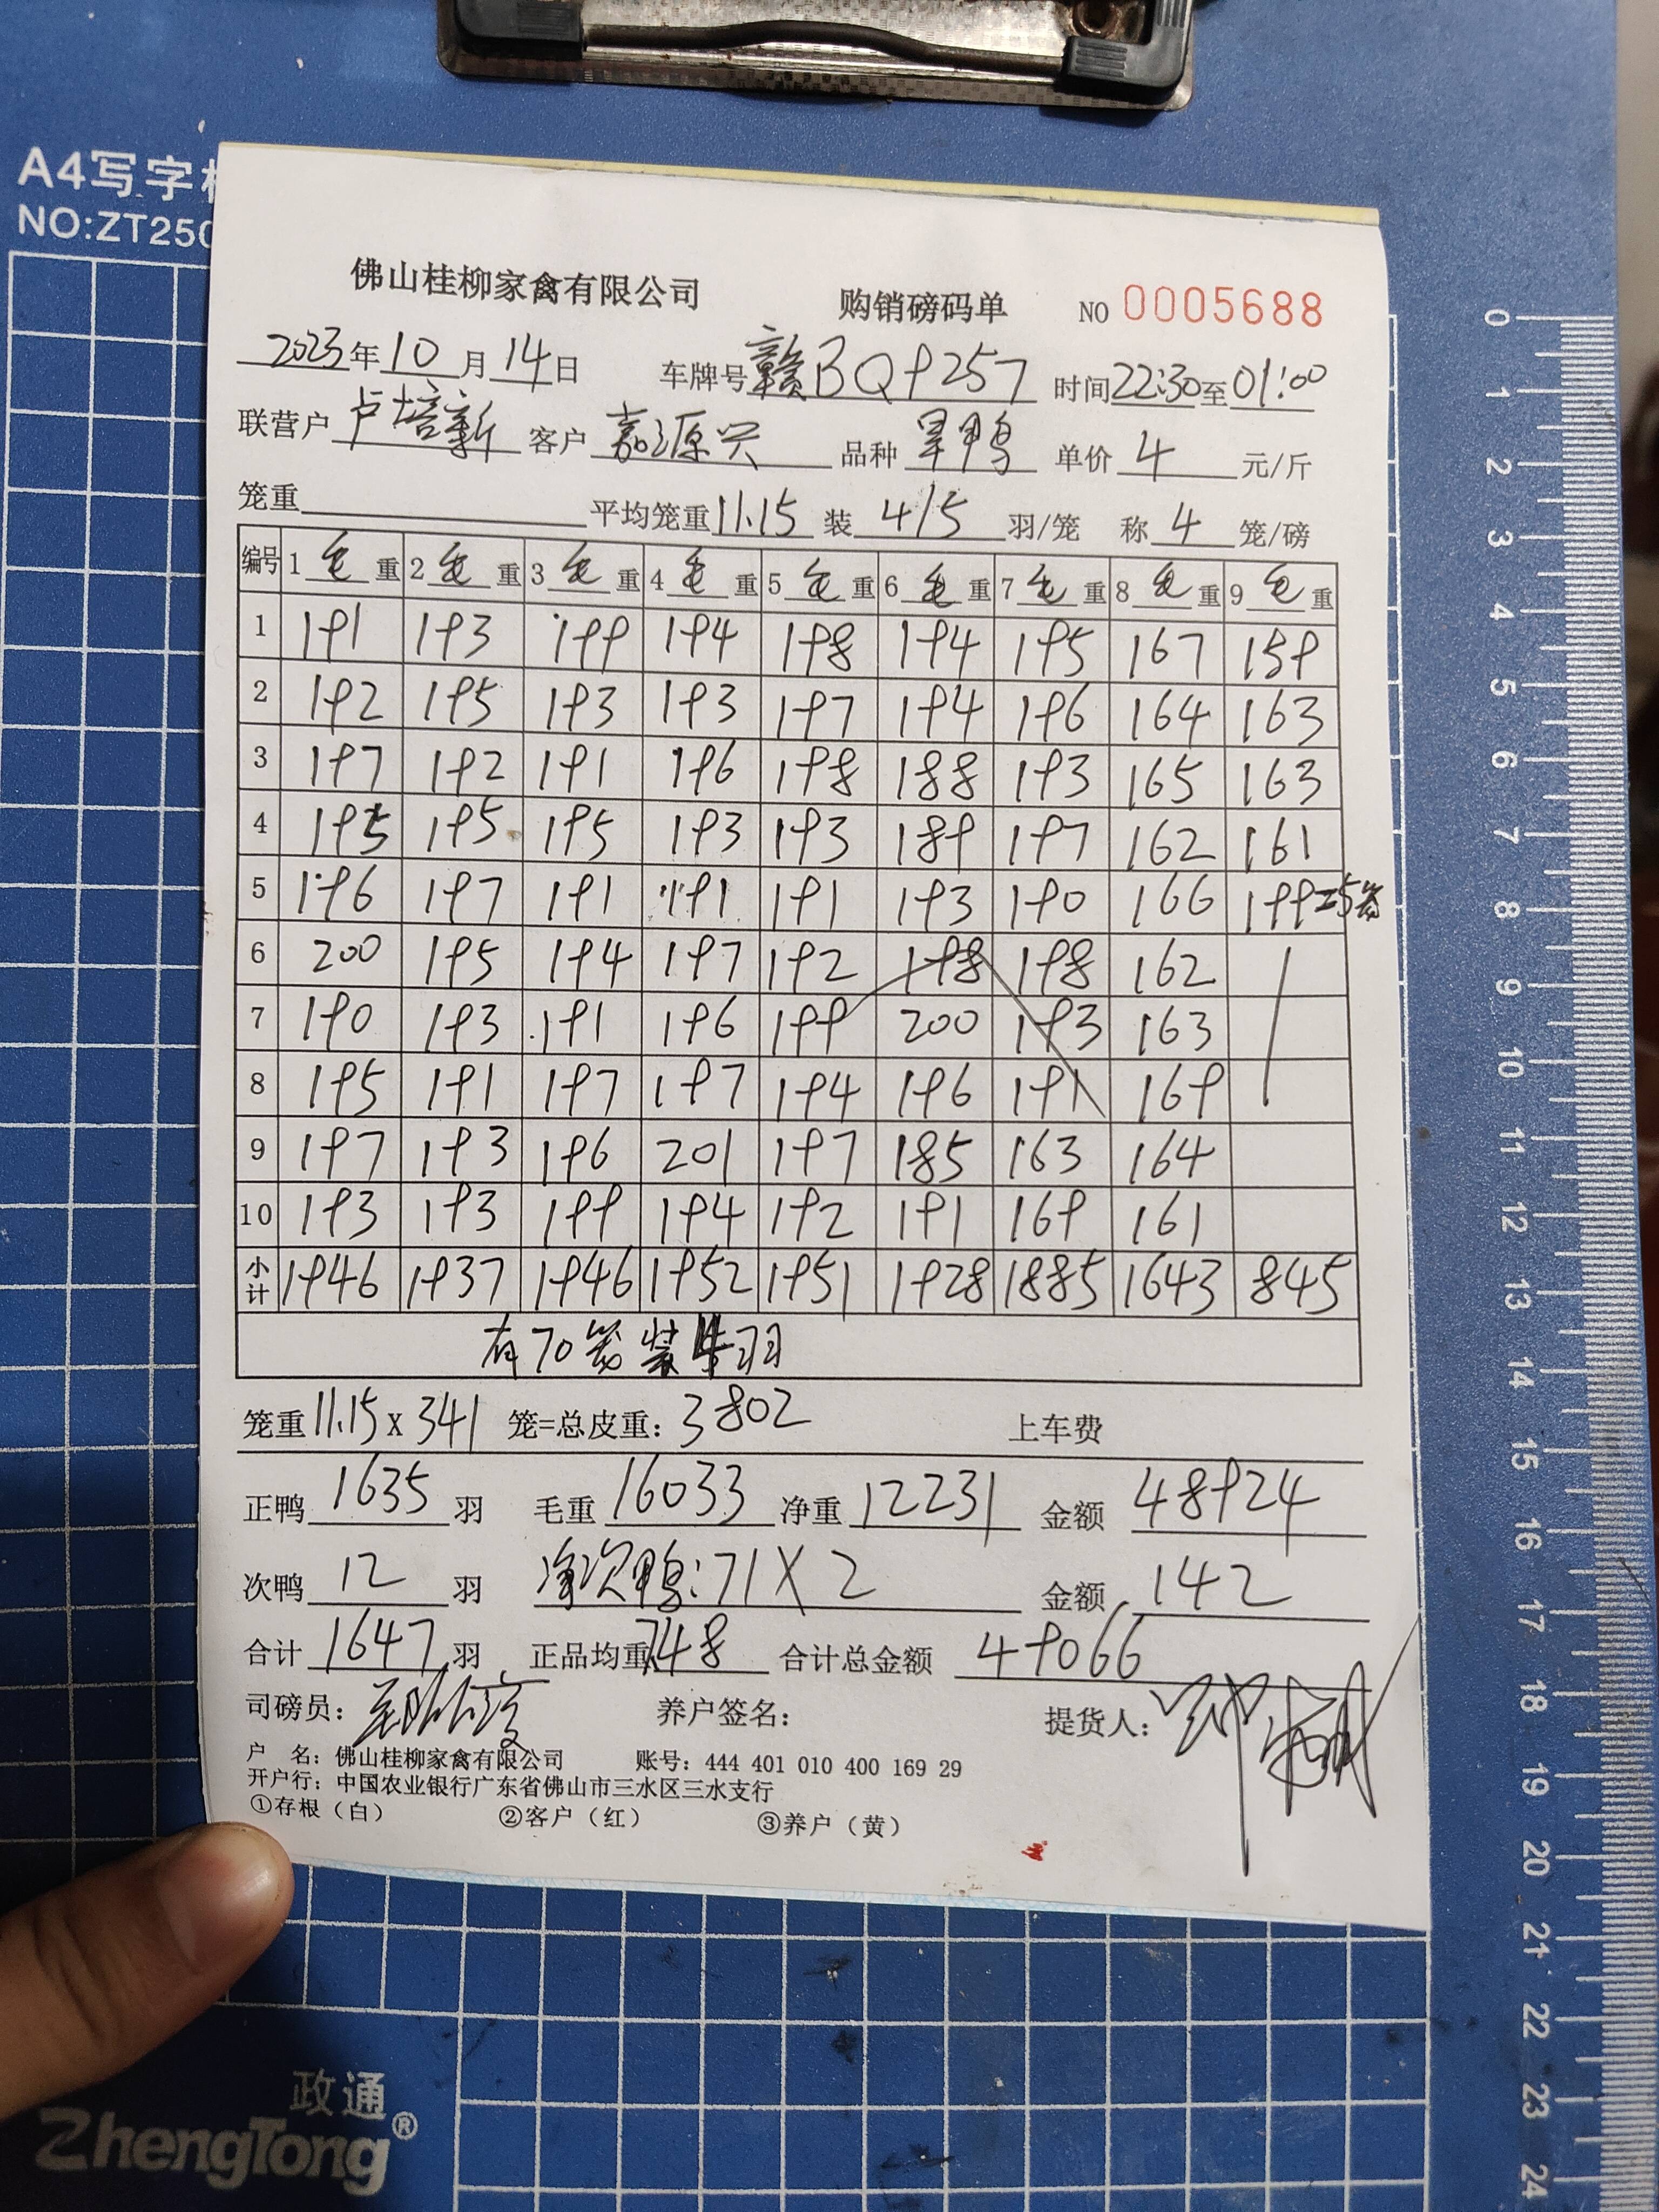 A4写字
NO:ZT250
佛山桂柳家禽有限公司 购销磅码单 NO 0005688
2023年10月14日 车牌号赣BQ9257 时间22:30至01:00
联营户 卢培新 客户 嘉源兴 品种 旱鸭 单价 4 元/斤
笼重 平均笼重11.15 装 4/5 羽/笼 称 4 笼/磅
编号 1毛重 2毛重 3毛重 4毛重 5毛重 6毛重 7毛重 8毛重 9毛重
1 191 193 199 194 198 194 195 167 159
2 192 195 193 193 197 194 196 164 163
3 197 192 191 196 198 188 193 165 163
4 195 195 195 193 193 189 197 162 161
5 196 197 191 191 191 193 190 166 199=5笼
6 200 195 194 197 192 198 198 162
7 190 193 191 196 199 200 193 163
8 195 191 197 197 194 196 191 169
9 197 193 196 201 197 185 163 164
10 193 193 199 194 192 191 169 161
小计 1946 1937 1946 1952 1951 1928 1885 1643 845
有70笼装4羽
笼重11.15x341 笼=总皮重:3802 上车费
正鸭 1635 羽 毛重 16033 净重 12231 金额 48924
次鸭 12 羽 净次鸭:71X2 金额 142
合计 1647 羽 正品均重7.48 合计总金额 49066
司磅员: 养户签名: 提货人:
户 名: 佛山桂柳家禽有限公司 账号: 444 401 010 400 169 29
开户行: 中国农业银行广东省佛山市三水区三水支行
①存根(白) ②客户(红) ③养户(黄)
政通
ZhengTong®
0
1
2
3
4
5
6
7
8
9
10
11
12
13
14
15
16
17
18
19
20
21
22
23
24